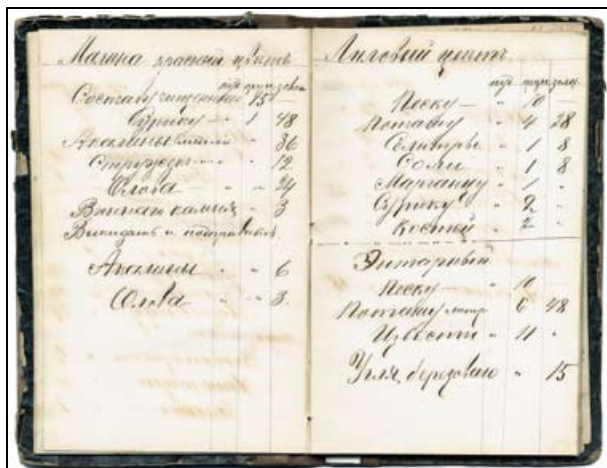 Малина красный цвѣтъ
пуд фун. золот
Составу чищеннаго 15 —
Сурику — " 1 48
Акалины медной " " 36
" " 12
Олова — " " 24
Виннаго камня " " 3
Выкидать и подправить
Акалины " " 6
Олова " " 3
Лиловый цвѣтъ
пуд фун. золот.
Песку — " 10 —
Поташу " 4 28
Селитры " 1 8
Соли " 1 8
Марганцу " 1 "
Сурику " 2 "
Костей " 2 "
Янтарный
Песку — " 10
Поташу 6 48
Извости " 11 "
Угля березоваго " 15